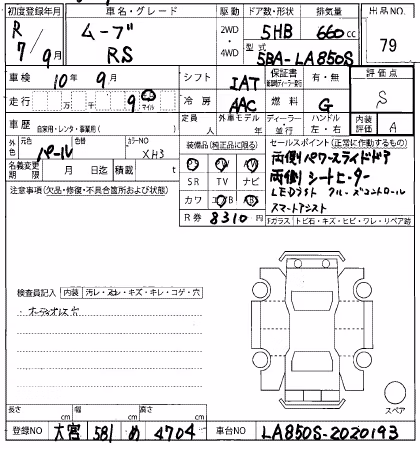 初度登録年月 車名・グレード 駆動 ドア数・形状 排気量 出品NO.
R 7/9月 ムーブ RS 2WD・4WD 5HB 660cc 79
型式 5BA-LA850S
車検 10年 9月 シフト IAT 保証書 有・無 評価点 S
走行 万 千 9 km マイル 冷房 AAC 燃料 G
車歴 自家用・レンタ・事業用( ) 定員 人 外車モデル 年 ディーラー 並行 ハンドル 左・右 内装評価 A
外色 元色 パール 色替 カラーNO XH3
装備品(純正品に限る) セールスポイント(正常に作動するもの)
PS PW AW
SR TV ナビ
カワ エアB ABS
両側パワースライドドア
両側シートヒーター
LEDライト クルーズコントロール
スマートアシスト
名義変更期限 月 日迄 積載 t
R券 8310
Fガラス トビ石・キズ・ヒビ・ワレ・リペア跡
注意事項(欠品・修復・不具合箇所および状態)
検査員記入 内装 汚レ・スレ・キズ・キレ・コゲ・穴
・オーディオレス穴
スペア
長さ cm 幅 cm 高さ cm
登録NO 大宮 581 め 4704 車台NO LA850S-2020193